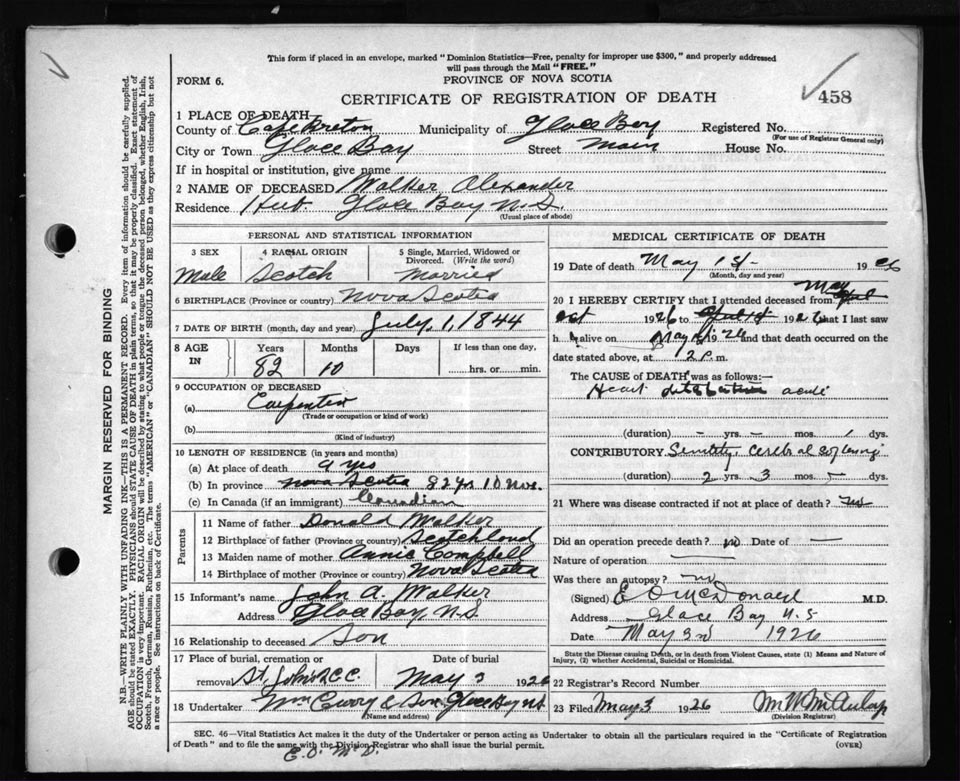 This form if placed in an envelope, marked "Dominion Statistics—Free, penalty for improper use $300," and properly addressed
will pass through the Mail "FREE."
FORM 6.
PROVINCE OF NOVA SCOTIA
CERTIFICATE OF REGISTRATION OF DEATH
458
1 PLACE OF DEATH
County of Cape Breton Municipality of Glace Bay Registered No.
(For use of Registrar General only)
City or Town Glace Bay Street Main House No.
If in hospital or institution, give name
2 NAME OF DECEASED Walker Alexander
Residence Hub. Glace Bay N.S.
(Usual place of abode)
PERSONAL AND STATISTICAL INFORMATION
3 SEX 4 RACIAL ORIGIN 5 Single, Married, Widowed or Divorced. (Write the word)
Male Scotch Married
6 BIRTHPLACE (Province or country) Nova Scotia
7 DATE OF BIRTH (month, day and year) July, 1, 1844
8 AGE IN Years Months Days If less than one day,
82 10 hrs. or min.
9 OCCUPATION OF DECEASED
(a) Carpenter
(Trade or occupation or kind of work)
(b)
(Kind of industry)
10 LENGTH OF RESIDENCE (in years and months)
(a) At place of death 9 yrs
(b) In province Nova Scotia 82 yrs 10 mos.
(c) In Canada (if an immigrant) Canadian
Parents
11 Name of father Donald Walker
12 Birthplace of father (Province or country) Scotchland
13 Maiden name of mother Annie Campbell
14 Birthplace of mother (Province or country) Nova Scotia
15 Informant's name John A. Walker
Address Glace Bay, N.S
16 Relationship to deceased Son
17 Place of burial, cremation or removal St. John's C.C. Date of burial May 3 1926
18 Undertaker Wm Curry & Son Glace Bay NS
(Name and address)
MEDICAL CERTIFICATE OF DEATH
19 Date of death May 1st - 1926
(Month, day and year)
May
20 I HEREBY CERTIFY that I attended deceased from
1926 to 1926 that I last saw
h alive on May 1926 and that death occurred on the
date stated above, at 12 P.m.
The CAUSE OF DEATH was as follows:—
Heart acute
(duration) - yrs. - mos. 1 dys.
CONTRIBUTORY Senility, cerebral
(duration) 2 yrs. 3 mos. dys.
21 Where was disease contracted if not at place of death?
Did an operation precede death? no Date of —
Nature of operation
Was there an autopsy? no
(Signed) E O McDonald M.D.
Address Glace Bay N.S
Date May 3rd 1926
State the Disease causing Death, or in death from Violent Causes, state (1) Means and Nature of
Injury, (2) whether Accidental, Suicidal or Homicidal.
22 Registrar's Record Number
23 Filed May 3 1926
(Division Registrar)
SEC. 46—Vital Statistics Act makes it the duty of the Undertaker or person acting as Undertaker to obtain all the particulars required in the "Certificate of Registration
of Death" and to file the same with the Division Registrar who shall issue the burial permit. (OVER)
E.O. McD.
MARGIN RESERVED FOR BINDING
N.B.—WRITE PLAINLY WITH UNFADING INK—THIS IS A PERMANENT RECORD. Every item of information should be carefully supplied.
AGE should be stated EXACTLY. PHYSICIANS should STATE CAUSE OF DEATH in plain terms, so that it may be properly classified. Exact statement of
OCCUPATION is very important. RACIAL ORIGIN will be described by stating to what people or tongue the deceased person belonged, whether English, Irish,
Scotch, French, German, Russian, Ruthenian, etc. The terms "AMERICAN" or "CANADIAN" SHOULD NOT BE USED as they express citizenship but not
a race or people. See instructions on back of Certificate.